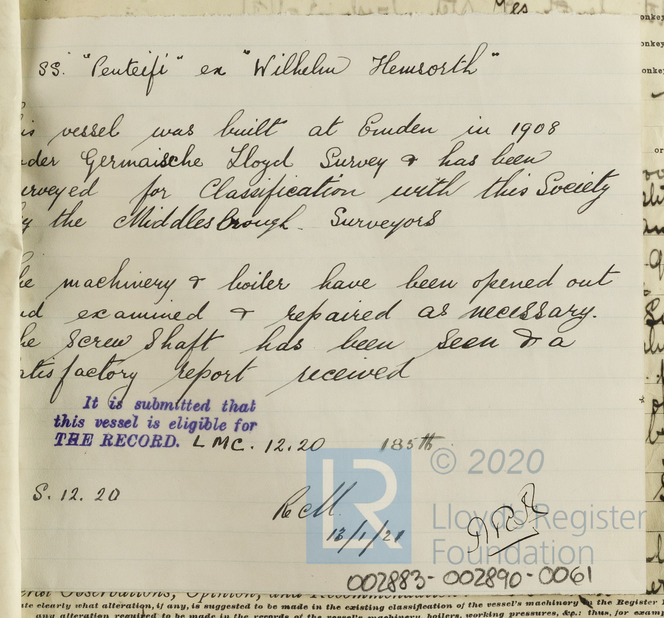 Mes
SS. "Penteifi" ex "Wilhelm Hemsorth"
is vessel was built at Emden in 1908
der Germaische Lloyd Survey & has been
urveyed for Classification with this Society
y the Middlesbrough. Surveyors
he machinery & boiler have been opened out
nd examined & repaired as necessary.
he Screw Shaft has been seen & a
atisfactory report received
It is submitted that
this vessel is eligible for
THE RECORD. LMC. 12.20 185 lb.
S. 12. 20
LR
© 2020
Lloyd's Register
Foundation
002883-002890-0061
eral Observations, Opinion, and Recommendation
ate clearly what alteration, if any, is suggested to be made in the existing classification of the vessel's machinery in the Register
any alteration required to be made in the records of the vessel's machinery, boilers, working pressures, &c.: thus, for exam